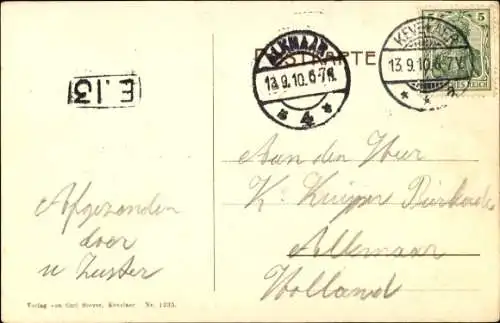 POSTKARTE
ALKMAAR
13.9.10.6-7N.
* 4 *
KEVELAER
13.9.10.6-7V.
* * a
5 5
DEUTSCHES REICH
E.13
Aan den Heer
K. Kuijper Dirkzde
Alkmaar
Holland
Afgezonden
door
u Zuster
Verlag von Carl Storer, Kevelaer Nr. 1235.